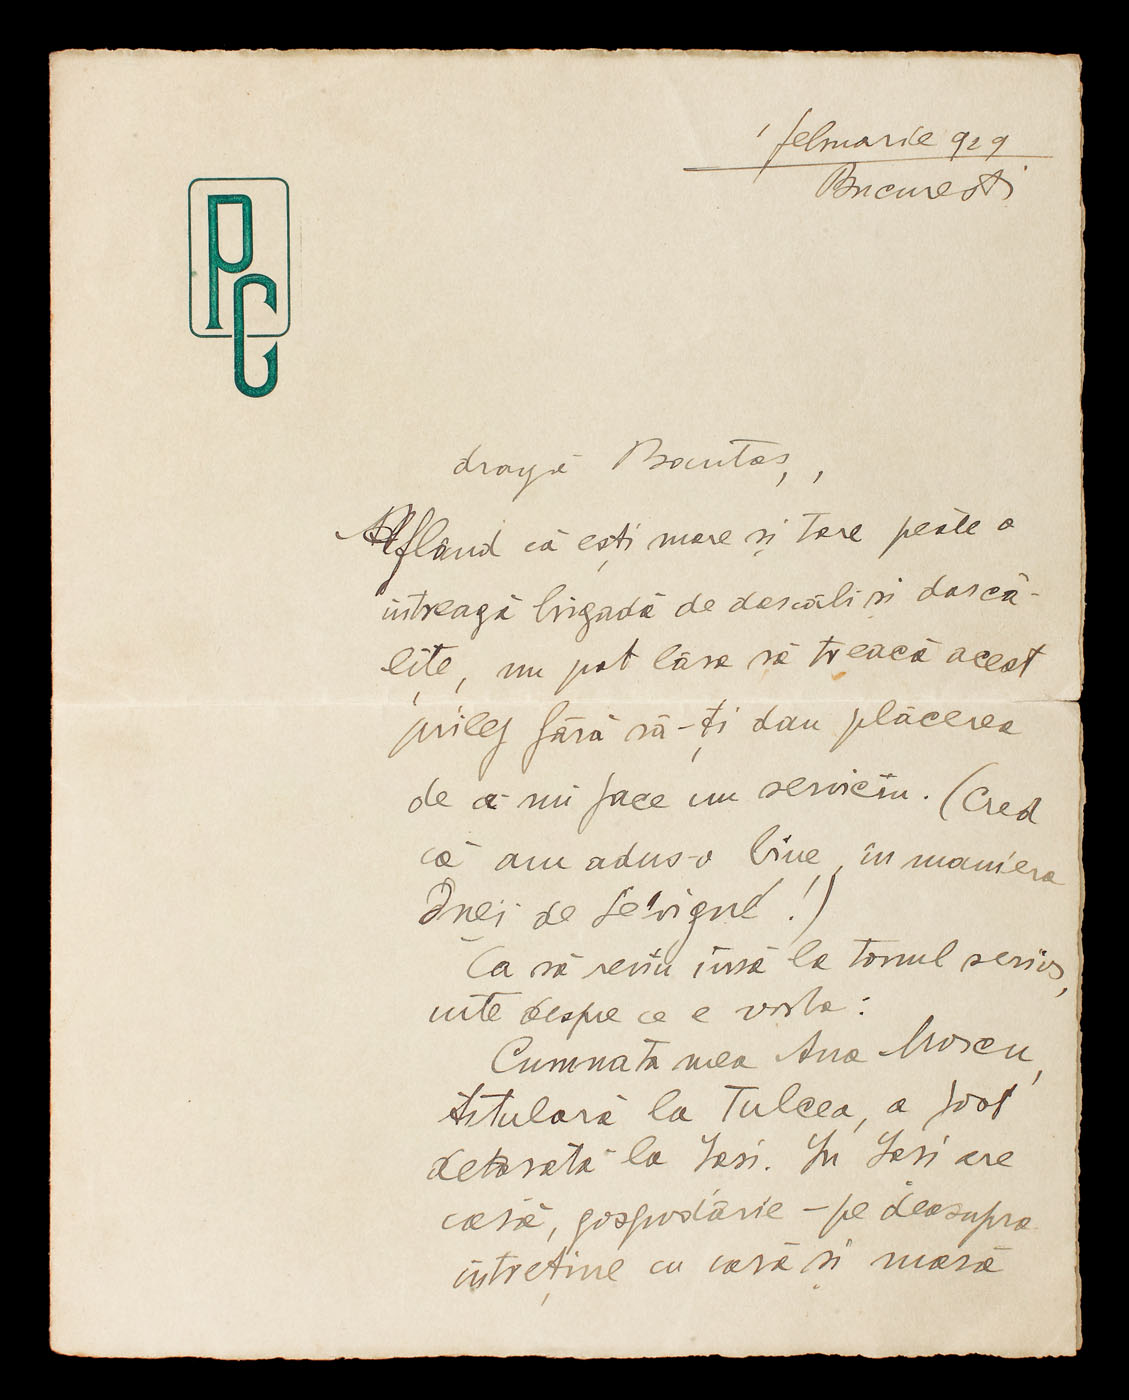 PC
1 februarie 929
București
dragă Bantaș,
Aflând că ești mare și tare peste o
întreagă brigadă de dascăli și dască-
lițe, nu pot lăsa să treacă acest
prilej fără să-ți dau plăcerea
de a-mi face un serviciu. (Cred
că am adus-o bine, în maniera
Dnei de Sévigné!)
Ca să reviu însă la tonul serios,
uite despre ce e vorba:
Cumnata mea Ana Moscu,
titulară la Tulcea, a fost
detașată la Iași. In Iași are
casă, gospodărie - pe deasupra
întreține cu casă și masă